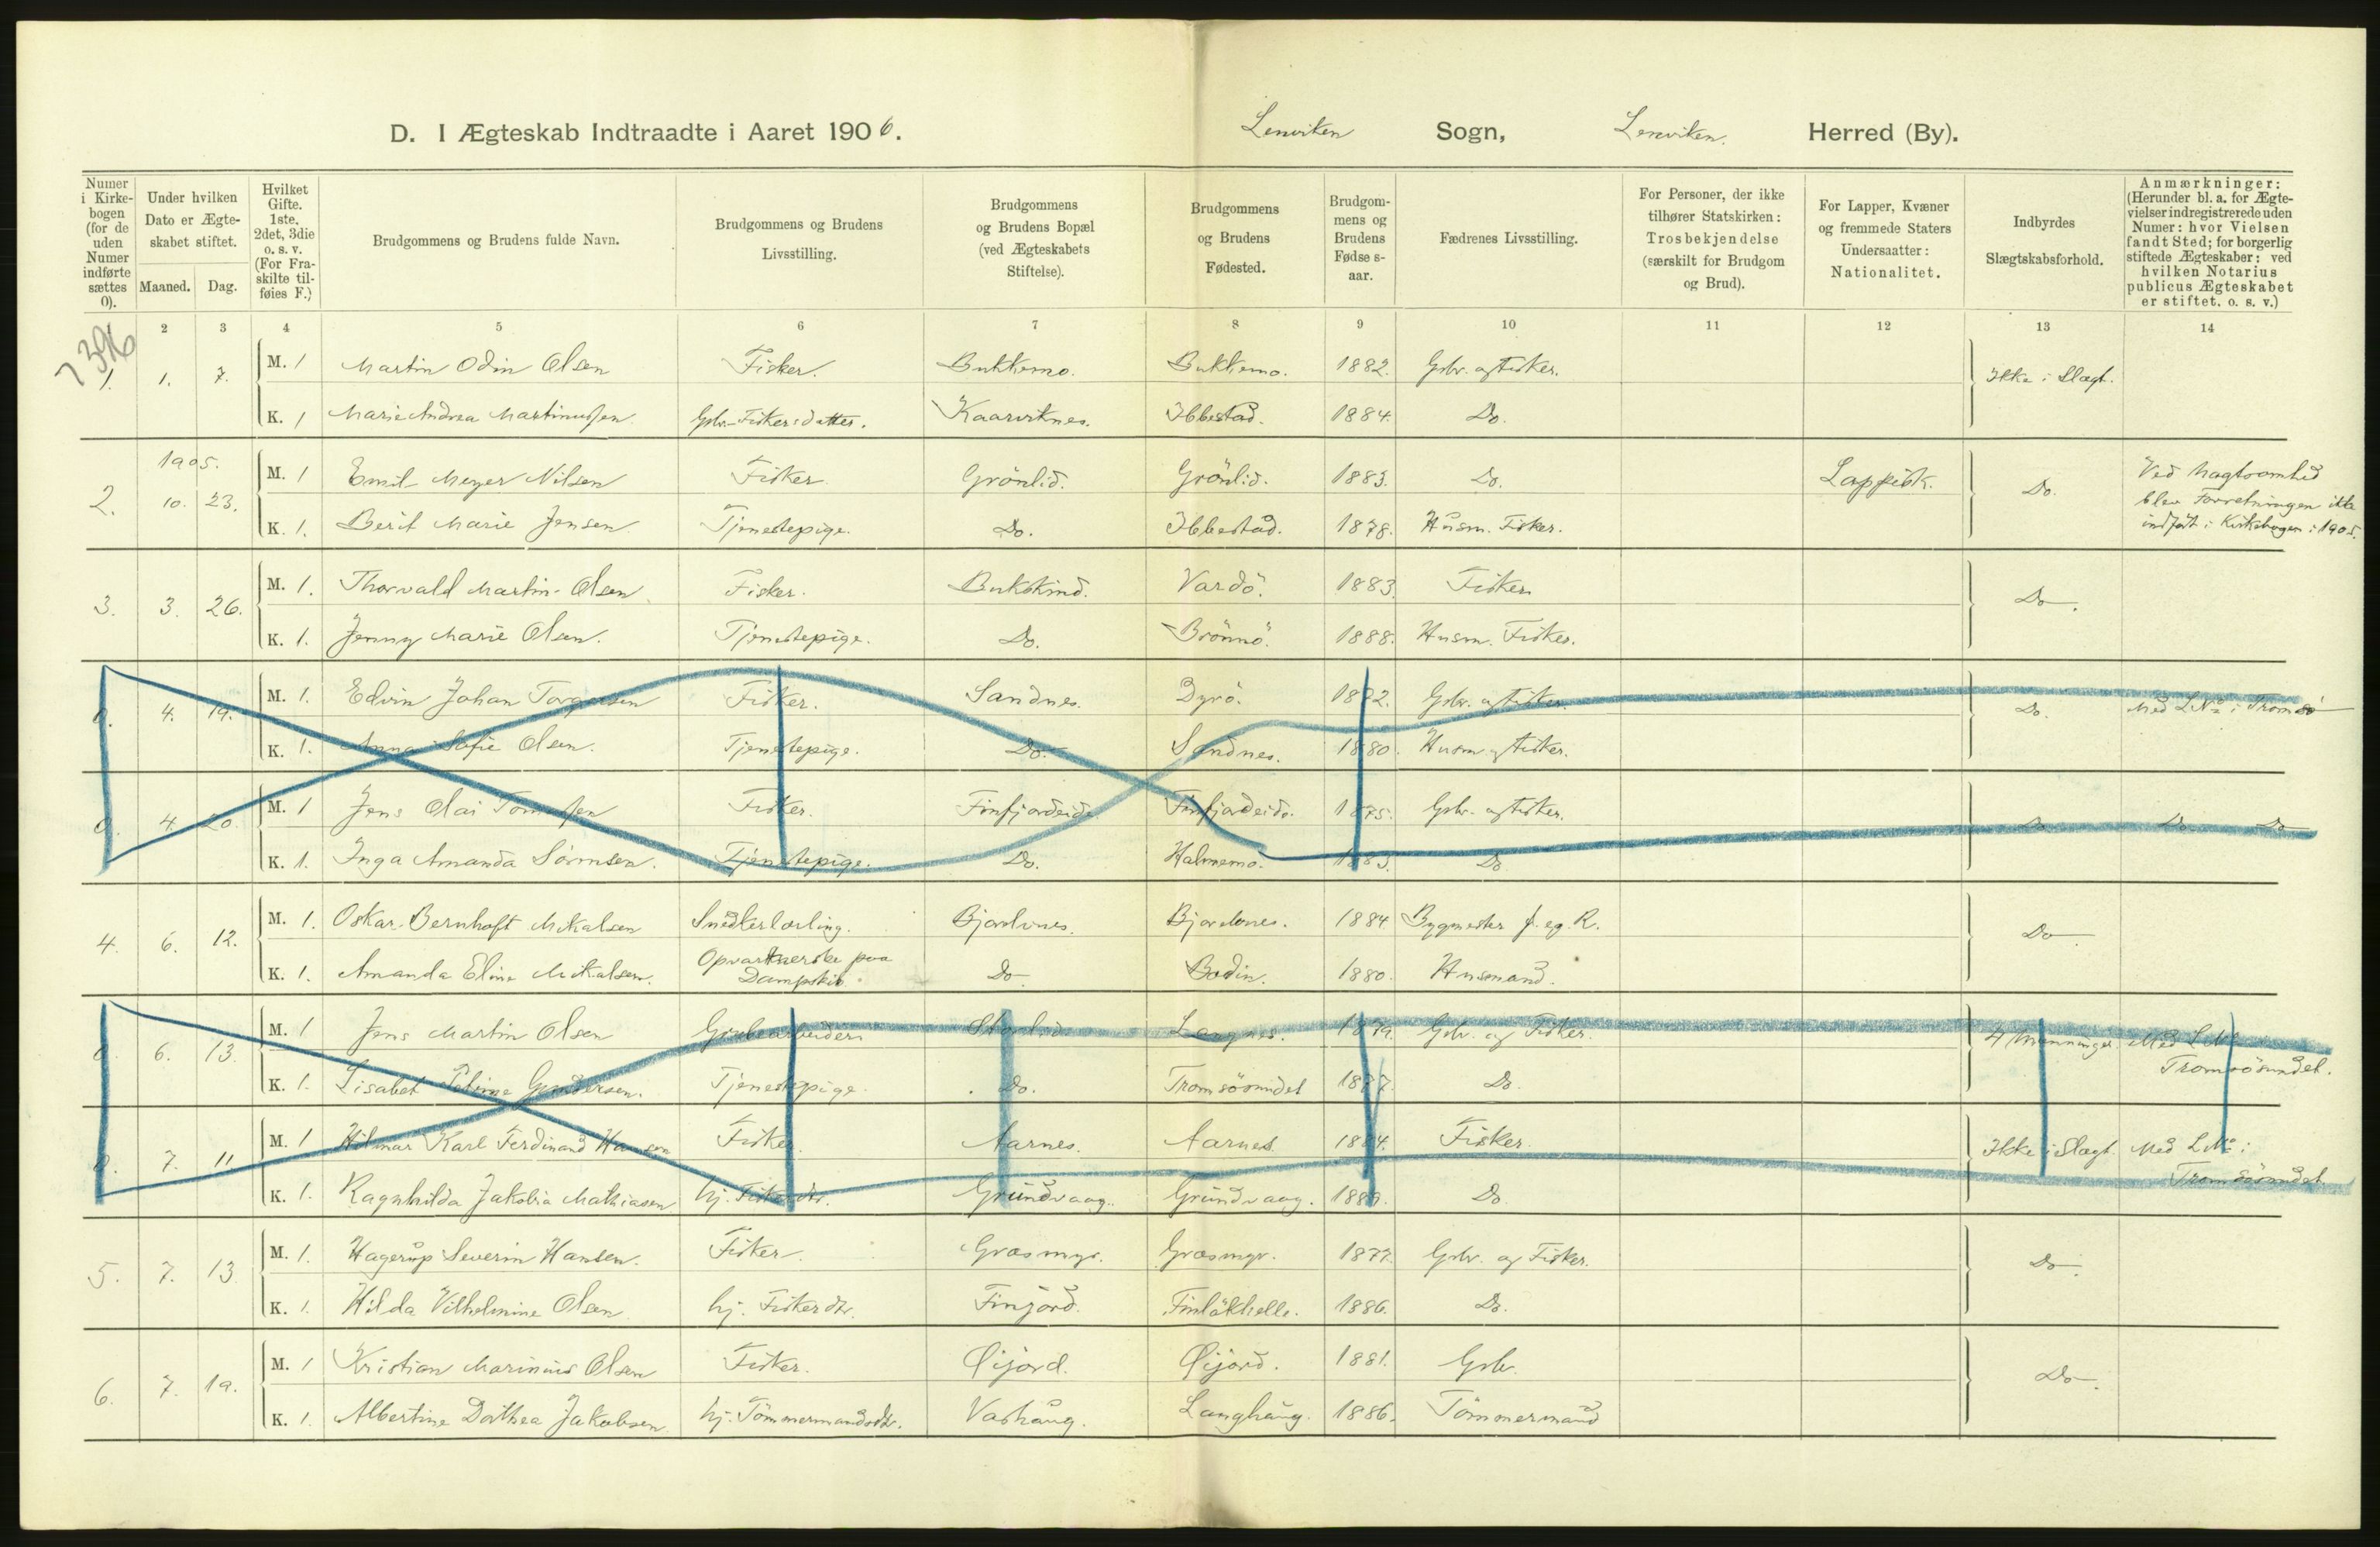 D. I Ægteskab Indtraadte i Aaret 1906. Lenviken Sogn, Lenviken. Herred (By).
Numer i Kirkebogen (for de uden Numer indførte sættes 0).
Under hvilken Dato er Ægteskabet stiftet.
Maaned. Dag.
Hvilket Gifte. 1ste. 2det, 3die o. s. v. (For Fraskilte tilføies F.)
Brudgommens og Brudens fulde Navn.
Brudgommens og Brudens Livsstilling.
Brudgommens og Brudens Bopæl (ved Ægteskabets Stiftelse).
Brudgommens og Brudens Fødested.
Brudgommens og Brudens Fødse s-aar.
Fædrenes Livsstilling.
For Personer, der ikke tilhører Statskirken: Trosbekjendelse (særskilt for Brudgom og Brud).
For Lapper, Kvæner og fremmede Staters Undersaatter: Nationalitet.
Indbyrdes Slægtskabsforhold.
Anmærkninger: (Herunder bl. a. for Ægtevielser indregistrerede uden Numer: hvor Vielsen fandt Sted; for borgerlig stiftede Ægteskaber: ved hvilken Notarius publicus Ægteskabet er stiftet. o. s. v.)
2 3 4 5 6 7 8 9 10 11 12 13 14
1. 1. 7. M. 1 Martin Odin Olsen Fisker. Bukkemo. Bukkemo. 1882. Gbr. og Fisker. Ikke i Slægt.
K. 1 Marie Andrea Martinussen Gbr.-Fiskersdatter. Kaarviknes. Ibbestad. 1884. Do.
1905.
2. 10. 23. M. 1 Emil Meyer Nilsen Fisker Grönlid. Grönlid. 1883. Do. Lappisk. Do. Ved Uagtsomhed blev Forretningen ikke indført i Kirkebogen i 1905.
K. 1. Berit Marie Jensen Tjenestepige. Do. Ibbestad. 1878. Husm. Fisker.
3. 3. 26. M. 1. Thorvald Martin Olsen Fisker. Bukskind. Vardö. 1883. Fisker Do.
K. 1. Jenny Marie Olsen. Tjenestepige. Do. Brönnö. 1888. Husm. Fisker.
0. 4. 19. M. 1. Edvin Johan Torgersen Fisker. Sandnes. Dyrö. 1882. Gbr. og Fisker. Do. Med L.No i Tromsö
K. 1. Anna Sofie Olsen. Tjenestepige. Do. Sandnes. 1880. Husm. og Fisker.
0. 4. 20. M. 1 Jens Olai Fisker. Finfjordeide. Finfjordeide. 1875. Gbr. og Fisker. Do Do Do
K. 1. Inga Amanda Sörensen. Tjenestepige. Do. 1883. Do
4. 6. 12. M. 1. Oskar Bernhoft Mikalsen Snedkerlærling. Bjorelvnes. Bjorelvnes. 1884 Bygmester f. eg. R. Do
K. 1. Amanda Eline Mikalsen. Opvarterske paa Dampskib. Do. Bodin. 1880. Husmand.
0. 6. 13. M. 1 Jens Martin Olsen Grubearbeider Langnes. 1879. Gbr. og Fisker. 4 Menninger Med L.No Tromsösundet.
K. 1. Lisabet Tjenestepige. Do. Tromsösundet 1877. Do.
0. 7. 11 M. 1 Hilmar Karl Ferdinand Hansen Fisker Aarnes. Aarnes. 1884. Fisker. Ikke i Slægt. Med L.No i Tromsösundet
K. 1. Ragnhilda Jakobia Mathiasen hj. Fiskerdtr. Grundvaag. Grundvaag. 1889. Do.
5. 7. 13. M. 1. Hagerup Severin Hansen. Fisker. Græsmyr. Græsmyr. 1877. Gbr. og Fisker. Do.
K. 1. Hilda Vilhelmine Olsen hj. Fiskerdtr. Finjord. 1886. Do.
6. 7. 19. M. 1 Kristian Marinius Olsen Fisker. Øijord. Øijord. 1881. Gbr. Do.
K. 1. Albertine Dorthea Jakobsen hj. Tömmermandsdtr. Vashaug. Langhaug. 1886. Tömmermand